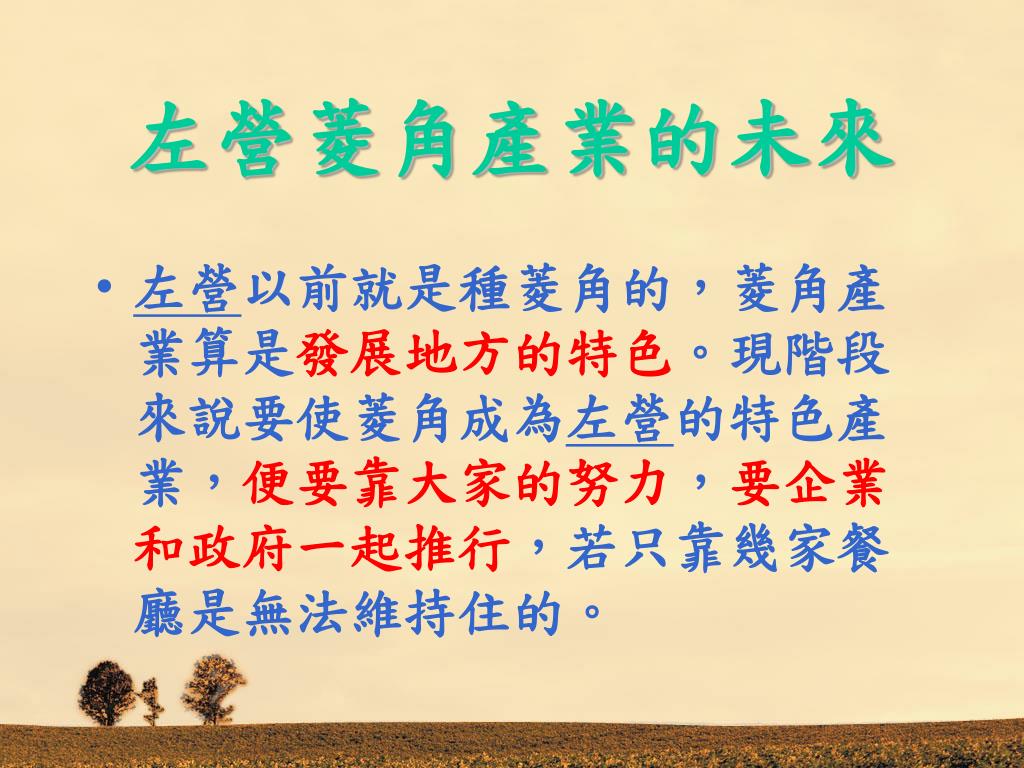 左營菱角產業的未來
• 左營以前就是種菱角的，菱角產
業算是發展地方的特色。現階段
來說要使菱角成為左營的特色產
業，便要靠大家的努力，要企業
和政府一起推行，若只靠幾家餐
廳是無法維持住的。